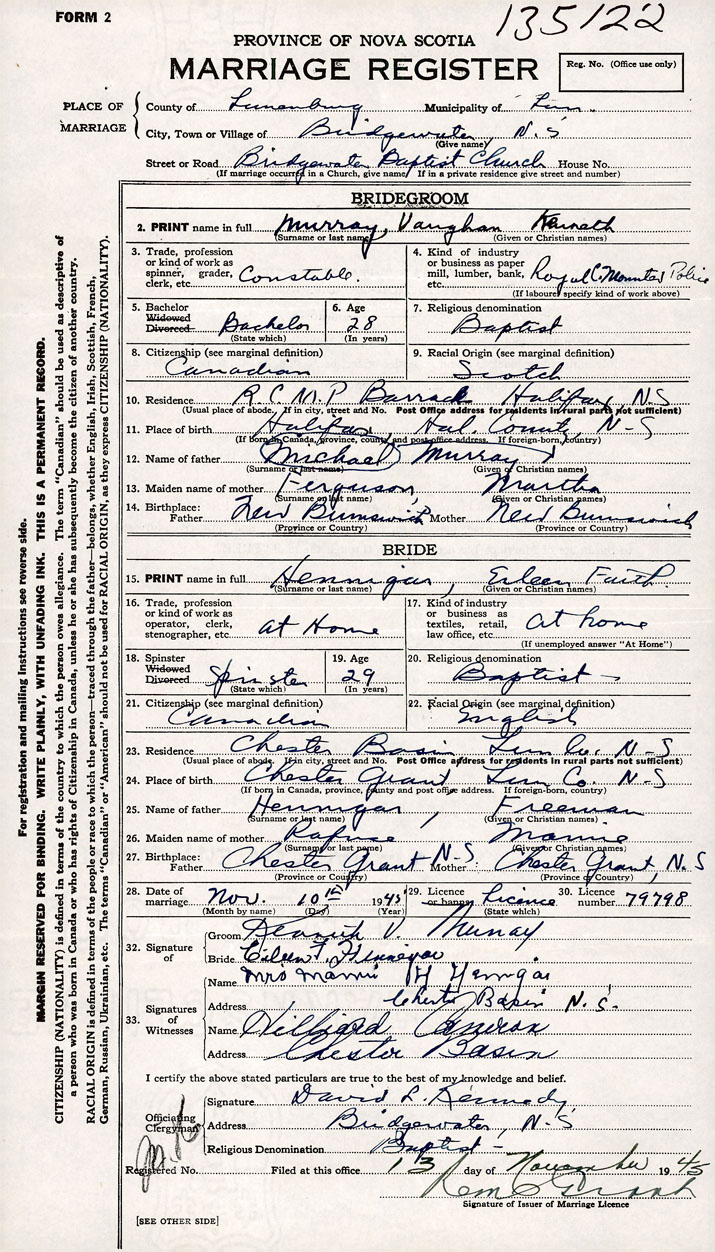 FORM 2
135122
PROVINCE OF NOVA SCOTIA
MARRIAGE REGISTER
Reg. No. (Office use only)
PLACE OF MARRIAGE
County of Lunenburg Municipality of Lun.
City, Town or Village of Bridgewater, N.S
(Give name)
Street or Road Bridgewater Baptist Church House No.
(If marriage occurred in a Church, give name) (If in a private residence give street and number)
BRIDEGROOM
2. PRINT name in full Murray, Vaughan Kenneth
(Surname or last name) (Given or Christian names)
3. Trade, profession or kind of work as spinner, grader, clerk, etc. Constable.
4. Kind of industry or business as paper mill, lumber, bank, etc. Royal C. Mounted Police
(If labourer specify kind of work above)
5. Bachelor Widowed Divorced Bachelor
(State which)
6. Age 28
(In years)
7. Religious denomination
Baptist
8. Citizenship (see marginal definition)
Canadian
9. Racial Origin (see marginal definition)
Scotch
10. Residence R.C.M.P Barrack Halifax, N.S
(Usual place of abode. If in city, street and No. Post Office address for residents in rural parts not sufficient)
11. Place of birth Halifax, Hal. County, N-S
(If Born in Canada, province, county and post office address. If foreign-born, country)
12. Name of father Michael Murray
(Surname or last name) (Given or Christian names)
13. Maiden name of mother Ferguson, Martha
(Surname or last name) (Given or Christian names)
14. Birthplace: Father New Brunswick Mother New Brunswick
(Province or Country) (Province or Country)
BRIDE
15. PRINT name in full Hennigar, Eileen Faith.
(Surname or last name) (Given or Christian names)
16. Trade, profession or kind of work as operator, clerk, stenographer, etc. at Home
17. Kind of industry or business as textiles, retail, law office, etc. at home
(If unemployed answer "At Home")
18. Spinster Widowed Divorced Spinster
(State which)
19. Age 29
(In years)
20. Religious denomination
Baptist -
21. Citizenship (see marginal definition)
Canadian
22. Racial Origin (see marginal definition)
English
23. Residence Chester Basin Lun Co. N-S
(Usual place of abode. If in city, street and No. Post Office address for residents in rural parts not sufficient)
24. Place of birth Chester Grant Lun Co. N-S
(If born in Canada, province, county and post office address. If foreign-born, country)
25. Name of father Hennigar, Freeman
(Surname or last name) (Given or Christian names)
26. Maiden name of mother Rafuse Mamie
(Surname or last name) (Given or Christian names)
27. Birthplace: Father Chester Grant N-S Mother Chester Grant, N.S
(Province or Country) (Province or Country)
28. Date of marriage Nov. 10th 1945
(Month by name) (Day) (Year)
29. Licence or banns Licence
(State which)
30. Licence number 79798
32. Signature of
Groom Kenneth V. Murray
Bride Eileen F. Hennigar
33. Signatures of Witnesses
Name Mrs Mamie H Hennigar
Address Chester Basin N.S.
Name Hilliard
Address Chester Basin
I certify the above stated particulars are true to the best of my knowledge and belief.
Officiating Clergyman
Signature David L. Kennedy
Address Bridgewater, N-S
Religious Denomination Baptist -
Registered No. Filed at this office 13 day of November 1945
Signature of Issuer of Marriage Licence
[SEE OTHER SIDE]
For registration and mailing instructions see reverse side.
MARGIN RESERVED FOR BINDING. WRITE PLAINLY, WITH UNFADING INK. THIS IS A PERMANENT RECORD.
CITIZENSHIP (NATIONALITY) is defined in terms of the country to which the person owes allegiance. The term "Canadian" should be used as descriptive of
a person who was born in Canada or who has rights of Citizenship in Canada, unless he or she has subsequently become the citizen of another country.
RACIAL ORIGIN is defined in terms of the people or race to which the person—traced through the father—belongs, whether English, Irish, Scottish, French,
German, Russian, Ukrainian, etc. The terms "Canadian" or "American" should not be used for RACIAL ORIGIN, as they express CITIZENSHIP (NATIONALITY).